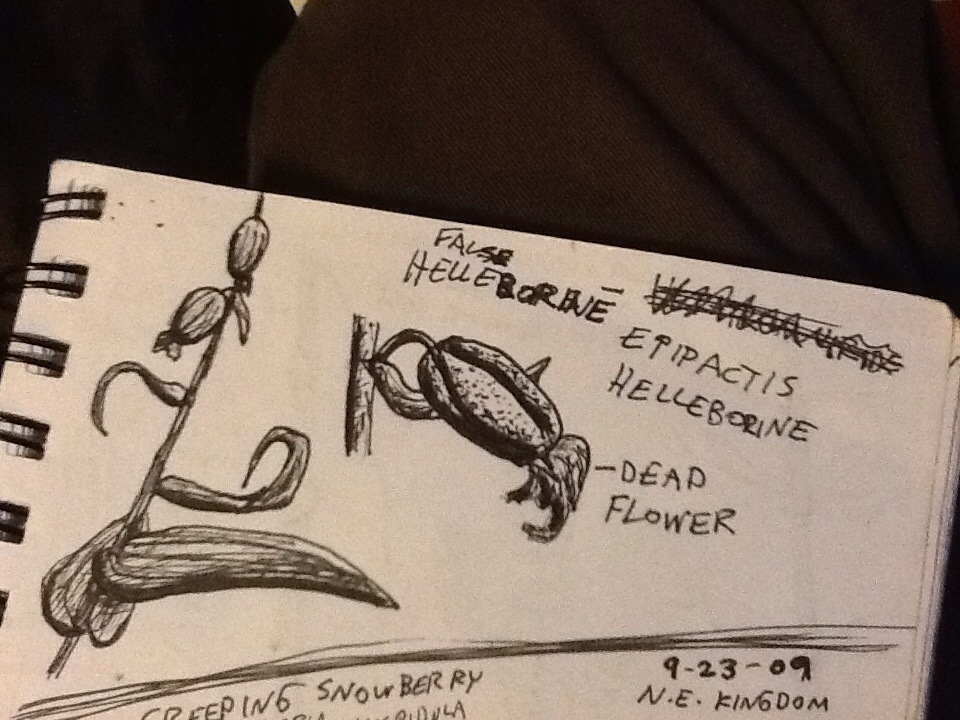 FALSE
HELLEBORINE -
EPIPACTIS
HELLEBORINE
- DEAD
FLOWER
CREEPING SNOWBERRY
9-23-09
N.E. KINGDOM